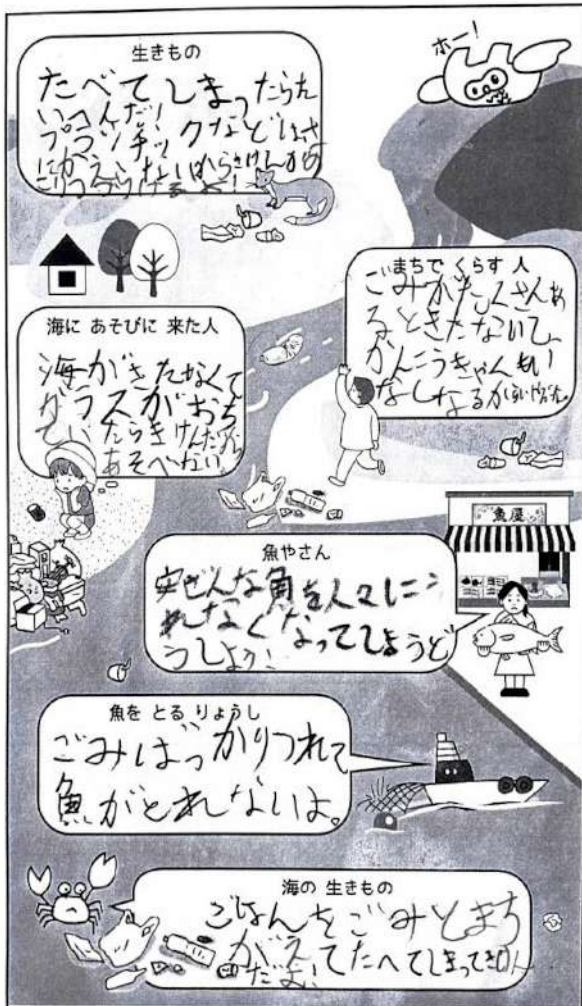 生きもの
たべてしまったらた
いへんだ!
プラスチックなどはさ
ホー!
まちで くらす 人
ごみがたくさんあ
るときたないて、
かんこうきゃんもい
なしなるか
海に あそびに 来た人
海がきたなくて
ガラスがおち
ていたらきけんだから
あそべない。
魚屋
魚やさん
安ぜんな魚を人々にう
れなくなってしまうど
うしよう
魚を とる りょうし
ごみばっかりつれて
魚がとれないよ。
海の 生きもの
ごはんをごみとまち
がえてたべてしまってきけん
だよ